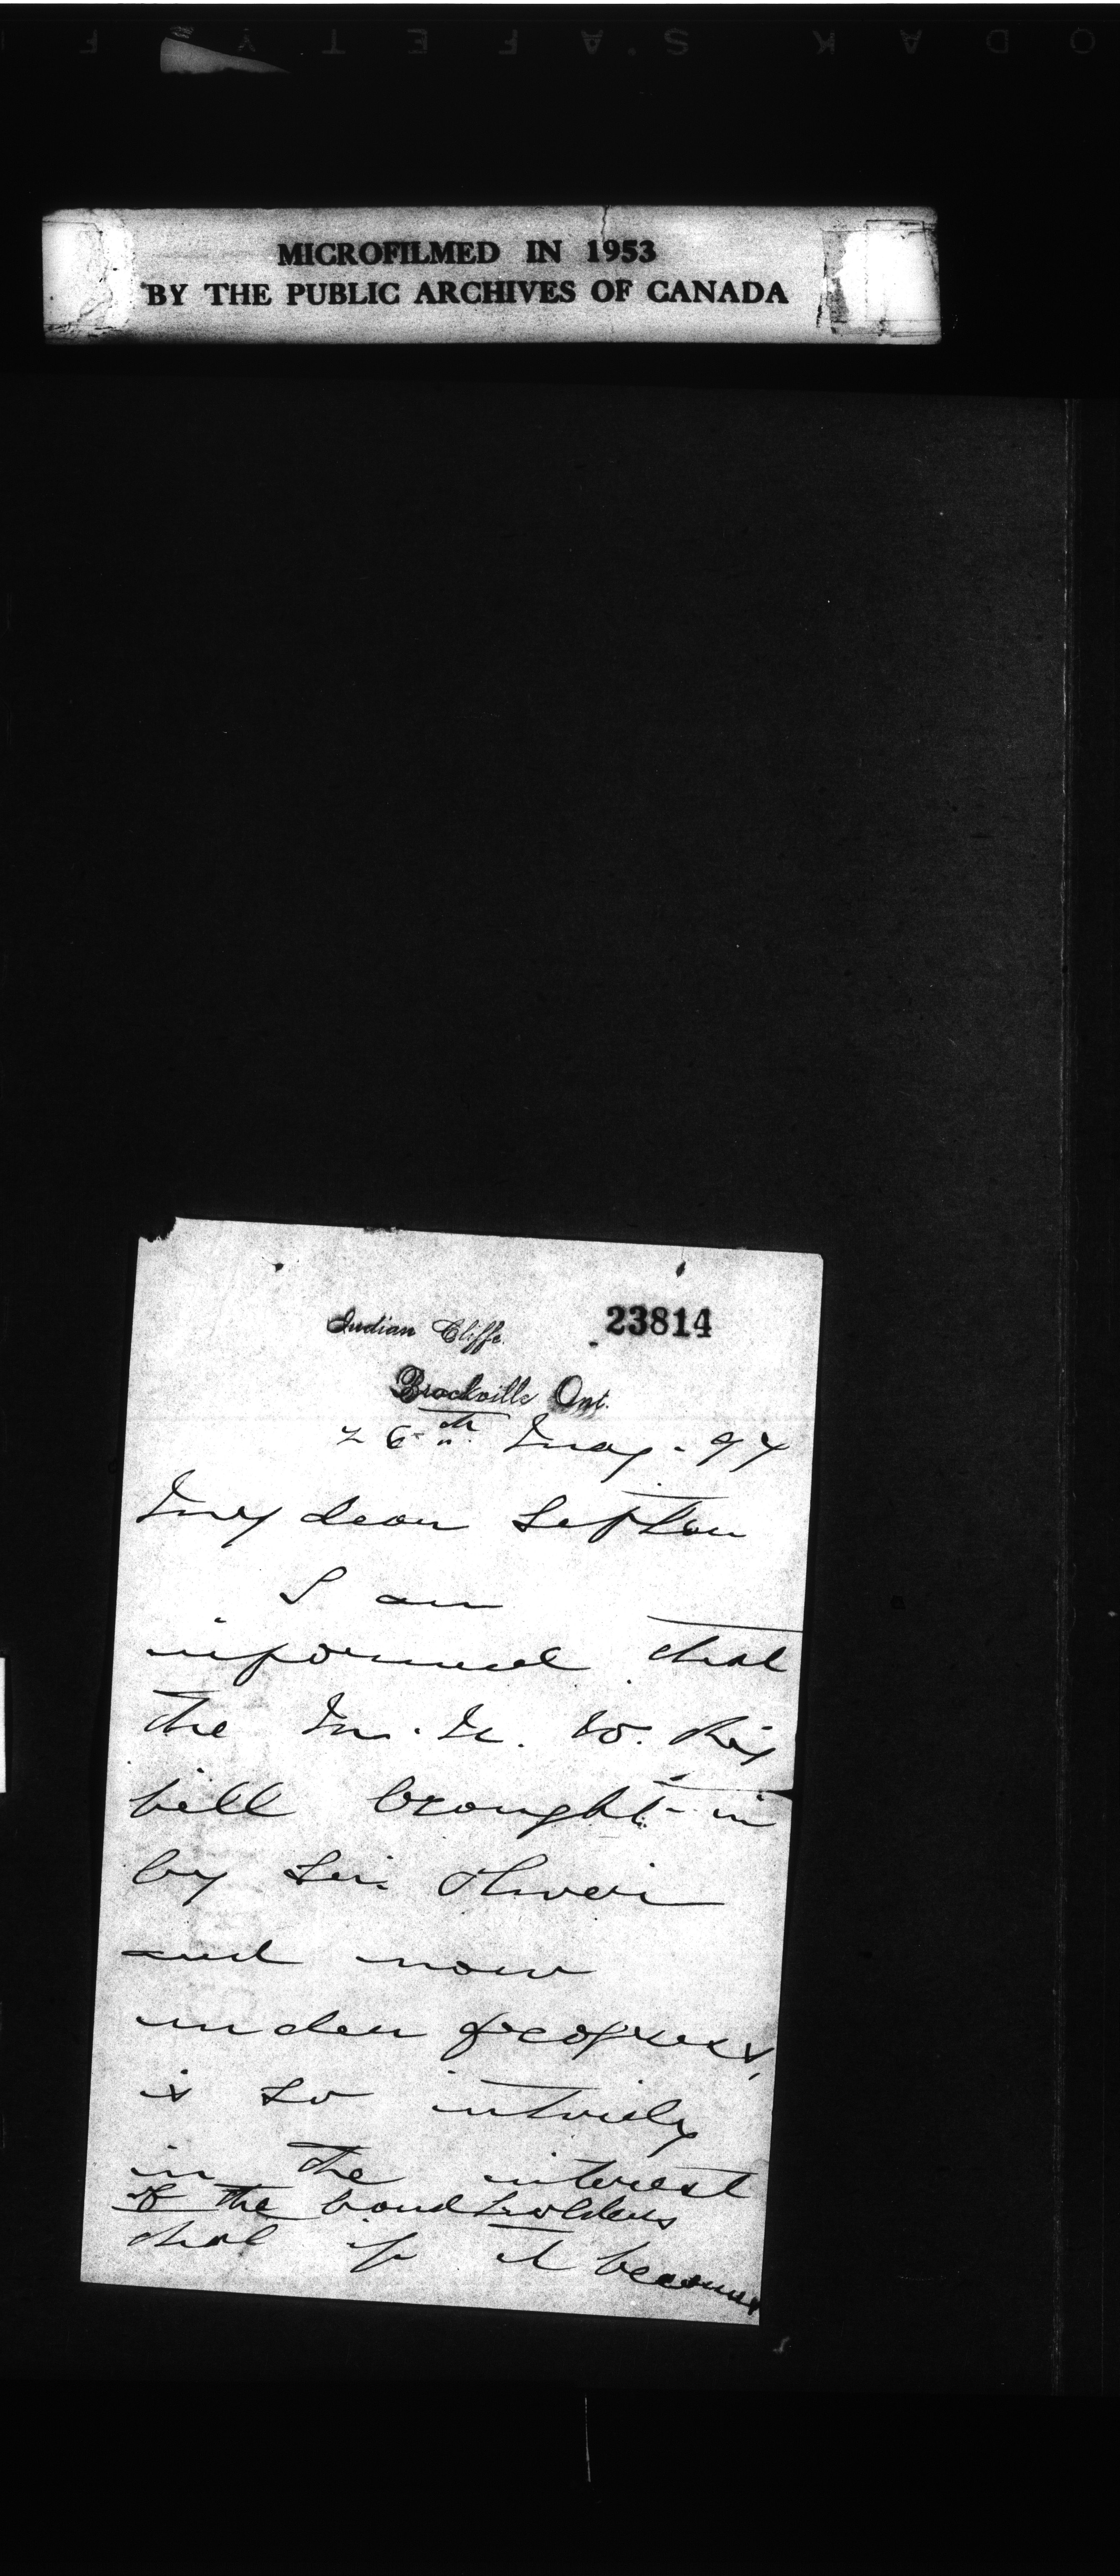 KODAK SAFETY F
MICROFILMED IN 1953
BY THE PUBLIC ARCHIVES OF CANADA
23814
Indian Cliffe.
Brockville Ont.
26th May - 97
My dear Sifton
I am
informed that
the M. & N. W. Rly
bill brought in
by Sir Oliver
and now
under progress,
is so intirely
in the interest
of the bondholders
that if it becomes